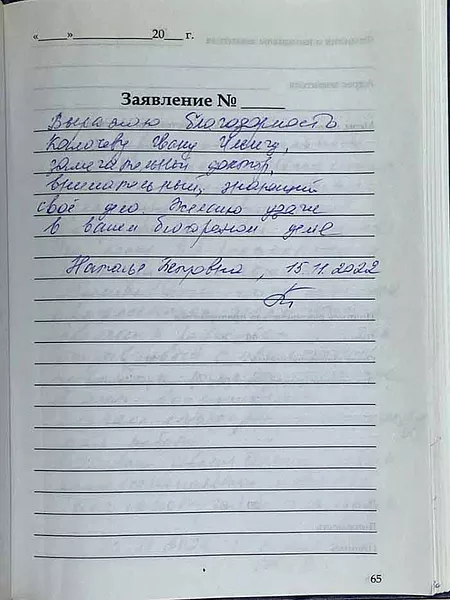 «____»____________20___ г.
Заявление № _____
Выражаю благодарность
Ивану
замечательный доктор,
внимательный, знающий
своё дело. Желаю удачи
в вашем благородном деле
Наталья Петровна, 15.11.2022
65